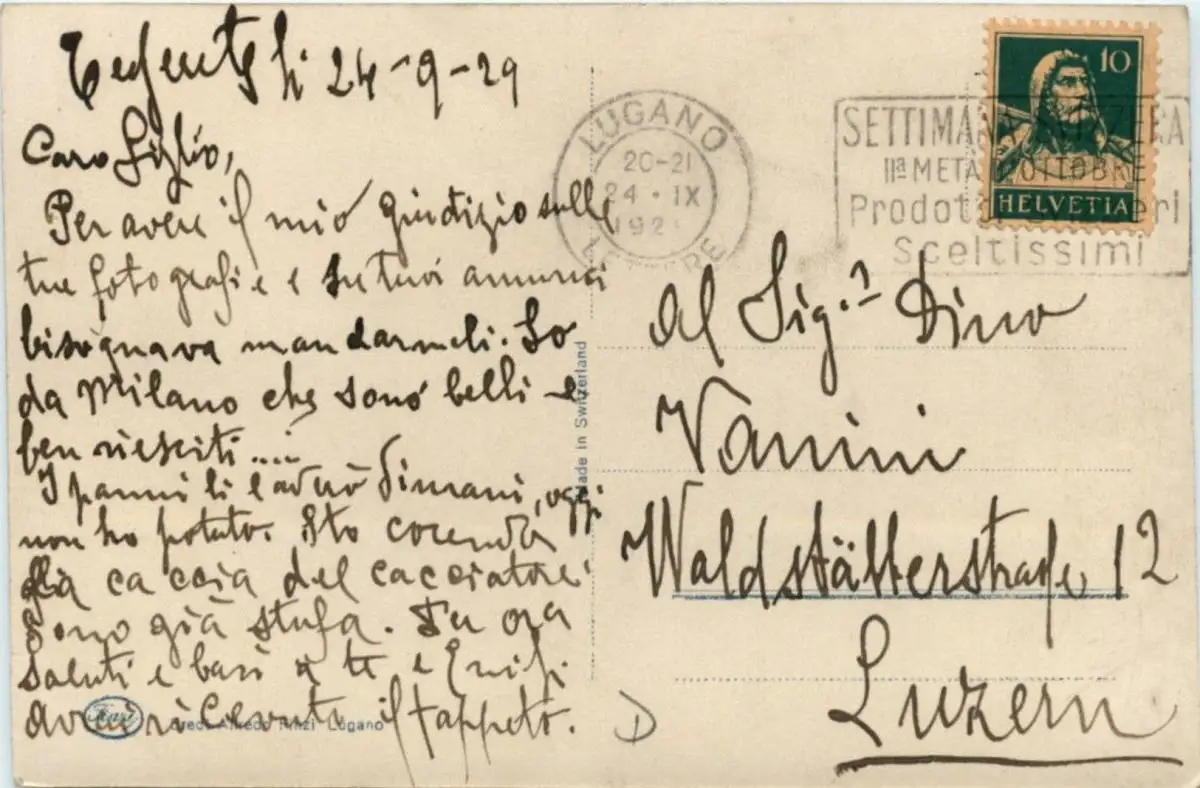 24-9-29
Caro Figlio,
Per avere il mio giudizio sulle
tue fotografie e su tuoi annunci
bisognava mandarmeli. So
da Milano che sono belli e
ben riesciti....
I panni li laverò dimani, oggi
non ho potuto. Sto
caccia del cacciatore
Sono già stufa. Per ora
saluti e baci a te e
ricevuto il tappeto.
Made in Switzerland
Alfredo Finzi Lugano
LUGANO
20-21
24 · IX
LETTERE
SETTIMANA SVIZZERA
IIª METÀ OTTOBRE
Prodotti Svizzeri
Sceltissimi
10
HELVETIA
Al Sig.r Dino
Vanini
Waldstätterstraße 12
Luzern
D